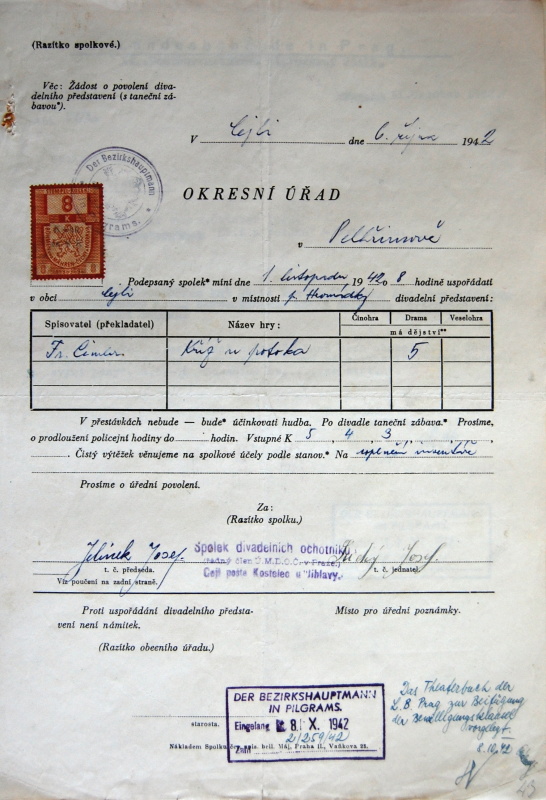 (Razítko spolkové.)
Věc: Žádost o povolení diva-
delního představení (s taneční zá-
bavou*).
V Cejli dne 6. října 1942
Der Bezirkshauptmann
Pilgrams.
8
K
OKRESNÍ ÚŘAD
v Pelhřimově
Podepsaný spolek* míní dne 1. listopadu 1942 o 8 hodině uspořádati
v obci Cejli v místnosti p. Hromádky divadelní představení:
Spisovatel (překladatel) Název hry: Činohra Drama Veselohra
má dějství**
Fr. Kříž u potoka 5
V přestávkách nebude — bude* účinkovati hudba. Po divadle taneční zábava.* Prosíme,
o prodloužení policejní hodiny do hodin. Vstupné K 5, 4, 3,
Čistý výtěžek věnujeme na spolkové účely podle stanov.* Na doplnění inventáře
Prosíme o úřední povolení.
Za:
(Razítko spolku.)
Jelínek Josef. Spolek divadelních ochotníků Josef.
(řádný člen Ú.M.D.O.Č. v Praze)
t. č. předseda. Cejl pošta Kostelec u Jihlavy. t. č. jednatel.
Viz poučení na zadní straně.
Proti uspořádání divadelního předsta-
vení není námitek.
Místo pro úřední poznámky.
(Razítko obecního úřadu.)
Das Theaterbuch der
L.B. Prag zur Beifügung
der
vorgelegt.
8.10.42
DER BEZIRKSHAUPTMANN
IN PILGRAMS.
starosta. Eingelang 8. X. 1942
21259/42
Nákladem Spolku čes. spis. bel. Máj, Praha II., Vaňkova 23.